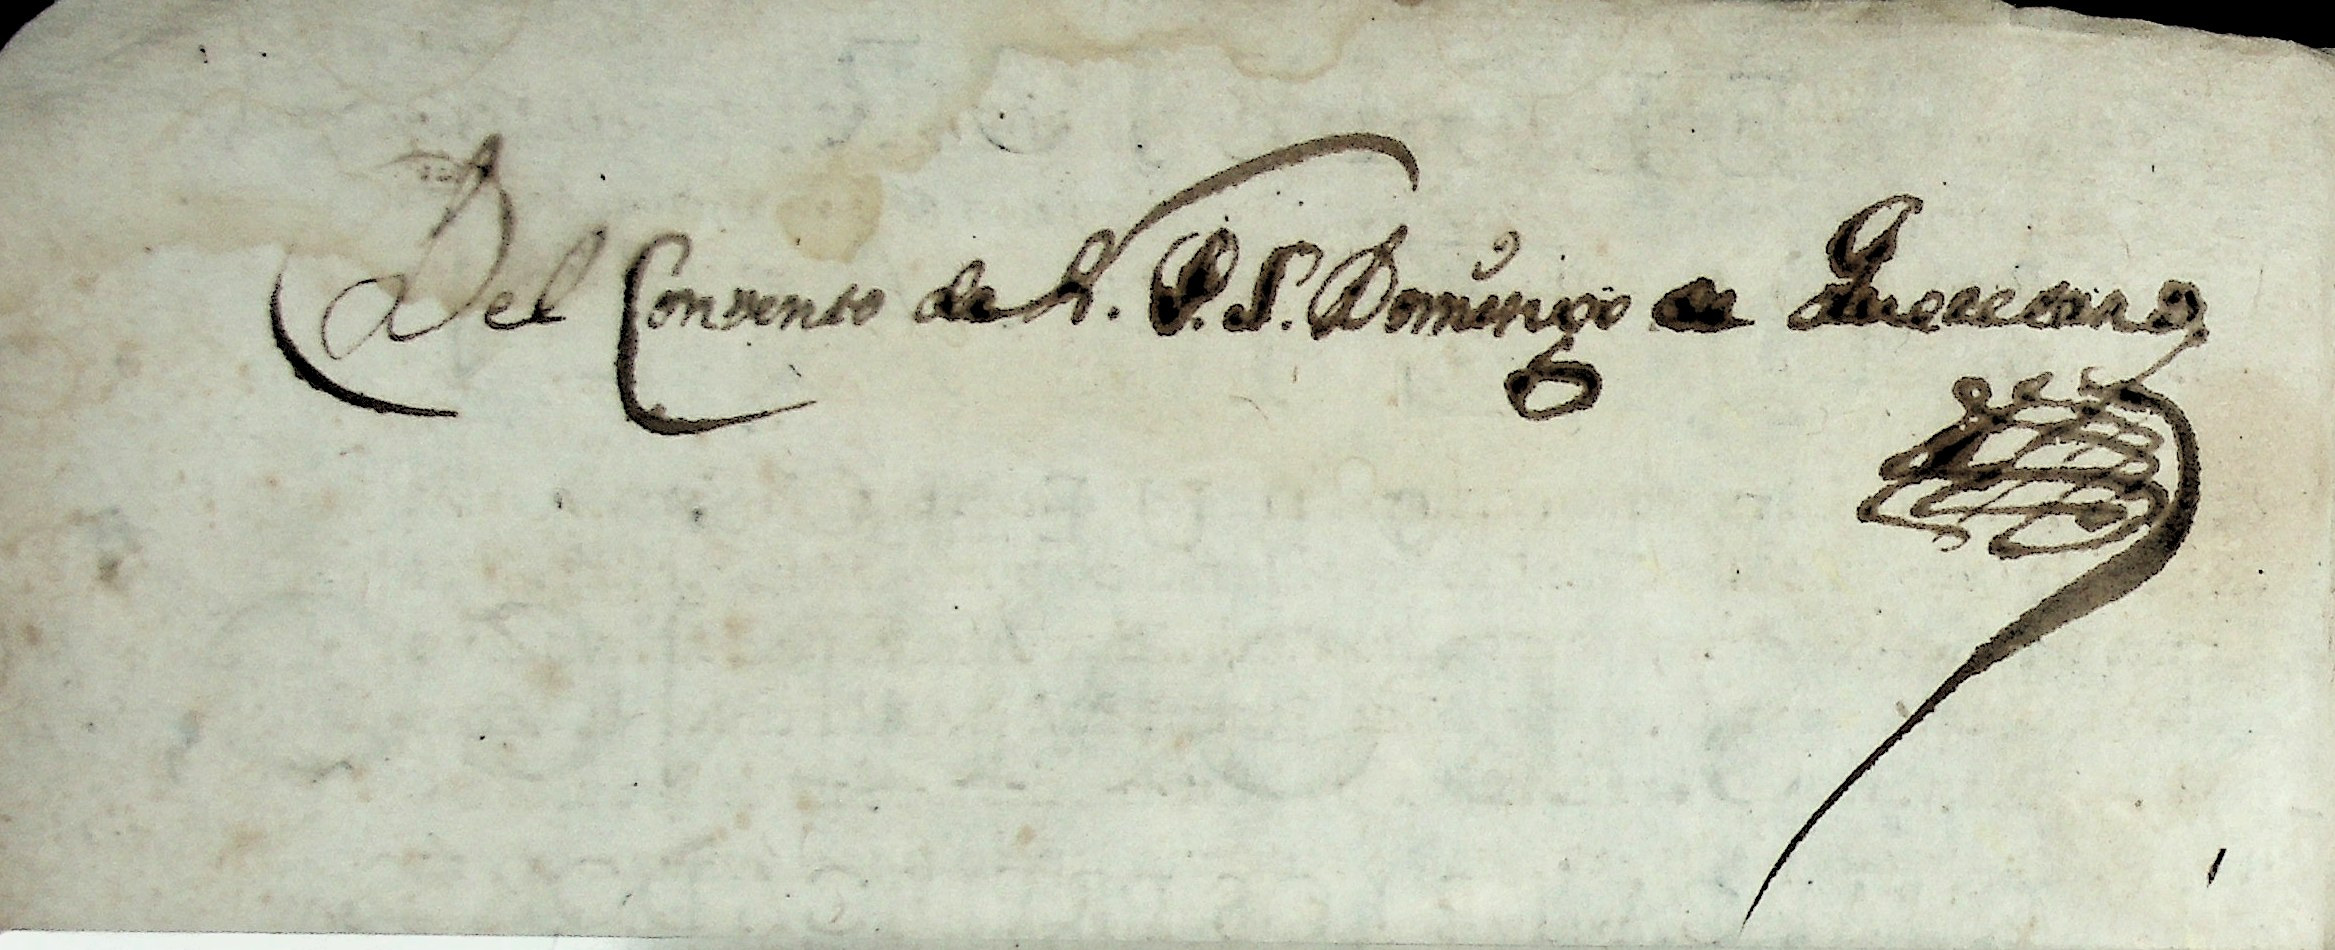 Del Convento de N. P. S. Domingo de Queretaro